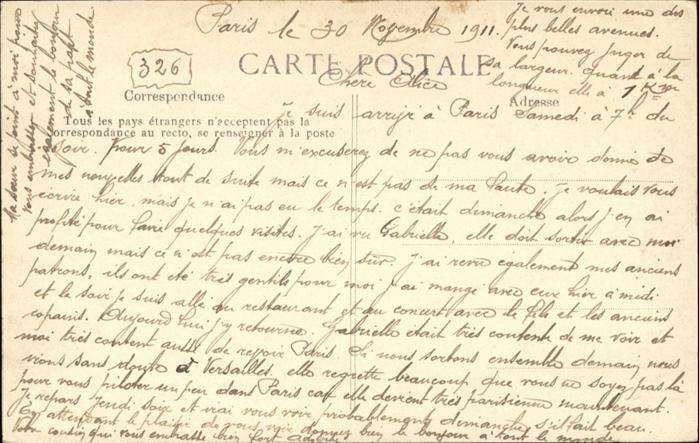 Paris le 30 Novembre 1911.
326
CARTE POSTALE
Correspondance
Adresse
Tous les pays étrangers n'acceptent pas la
correspondance au recto, se renseigner à la poste
Chère Alice
Je suis arrivé à Paris Samedi à 7h du
soir. Pour 5 jours. Vous m'excuserez de ne pas vous avoir donné de
mes nouvelles tout de suite mais ce n'est pas de ma faute. Je voulais vous
écrire hier. mais je n'ai pas eu le temps. c'était dimanche alors j'en ai
profité pour faire quelques visites. J'ai vu Gabrielle, elle doit sortir avec moi
demain mais ce n'est pas encore bien sur. J'ai revu également mes anciens
patrons, ils ont été très gentils pour moi j'ai mangé avec eux hier à midi
et le soir je suis allé au restaurant et au concert avec le et les anciens
copains. Aujourd'hui j'y retourne. Gabrielle était très contente de me voir et
moi très content aussi de revoir Paris. Si nous sortons ensemble demain nous
irons sans doute à Versailles. elle regrette beaucoup que vous ne soyez pas là
pour vous piloter un peu dans Paris car elle devient très parisienne maintenant.
Je repars Jeudi soir et irai vous voir probablement dimanche s'il fait beau.
En attendant le plaisir de vous voir donnez bien le bonjour à tout le monde
Votre cousin qui vous embrasse bien fort
Je vous envoie une des
plus belles avenues.
Vous pouvez juger de
sa largeur. Quant à la
longueur elle a 1
Ma soeur se joint à moi pour
vous embrasser et souhaiter
également le bonjour
de sa part
à tout le monde